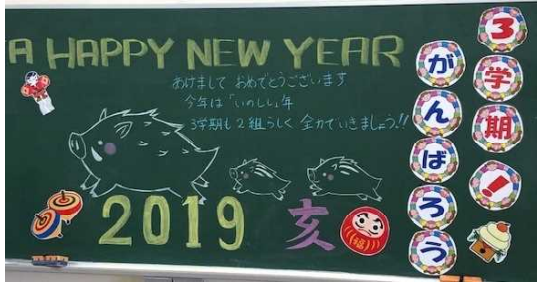 A HAPPY NEW YEAR
あけまして おめでとうございます
今年は「いのしし」年
3学期も2組らしく 全力でいきましょう!!
2019
亥
(福)
3学期!
がんばろう